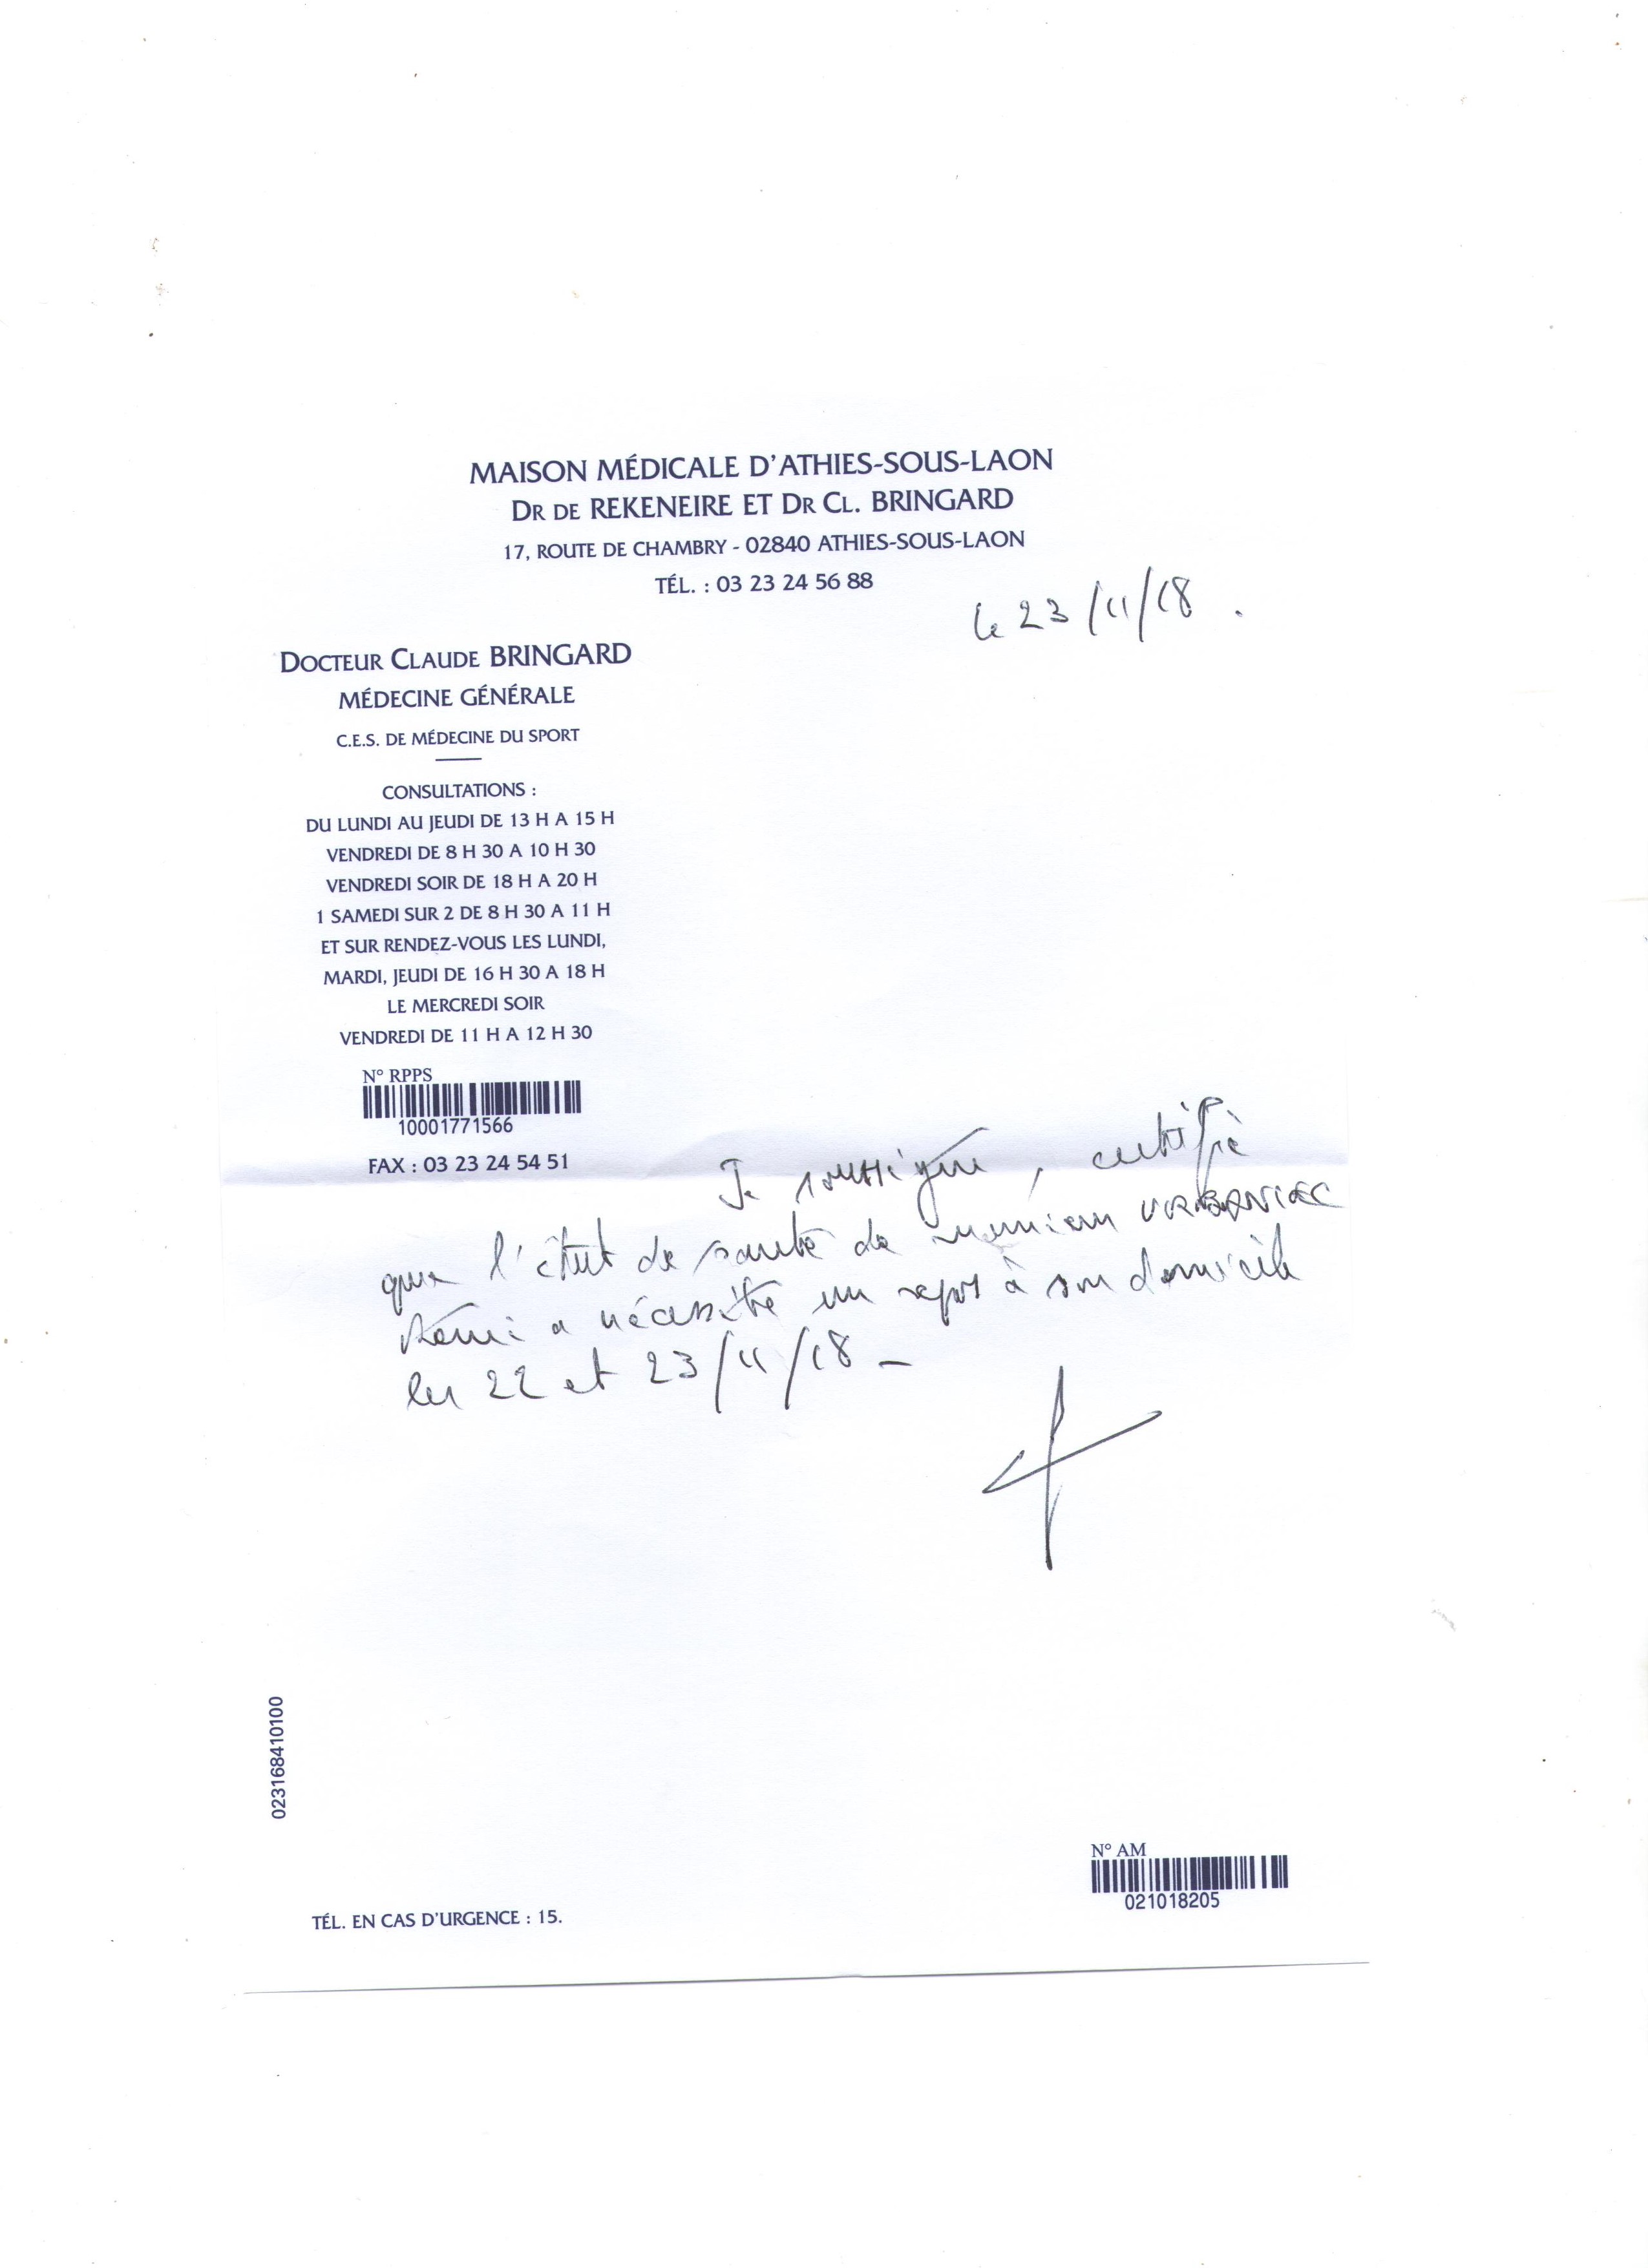 MAISON MÉDICALE D'ATHIES-SOUS-LAON
DR DE REKENEIRE ET DR CL. BRINGARD
17, ROUTE DE CHAMBRY - 02840 ATHIES-SOUS-LAON
TÉL. : 03 23 24 56 88
le 23/11/18.
DOCTEUR CLAUDE BRINGARD
MÉDECINE GÉNÉRALE
C.E.S. DE MÉDECINE DU SPORT
CONSULTATIONS :
DU LUNDI AU JEUDI DE 13 H A 15 H
VENDREDI DE 8 H 30 A 10 H 30
VENDREDI SOIR DE 18 H A 20 H
1 SAMEDI SUR 2 DE 8 H 30 A 11 H
ET SUR RENDEZ-VOUS LES LUNDI,
MARDI, JEUDI DE 16 H 30 A 18 H
LE MERCREDI SOIR
VENDREDI DE 11 H A 12 H 30
N° RPPS
10001771566
FAX : 03 23 24 54 51
Je soussigné, certifie
que l'état de santé de monsieur
Rémi a nécessité un repos à son domicile
les 22 et 23/11/18 -
023168410100
N° AM
021018205
TÉL. EN CAS D'URGENCE : 15.